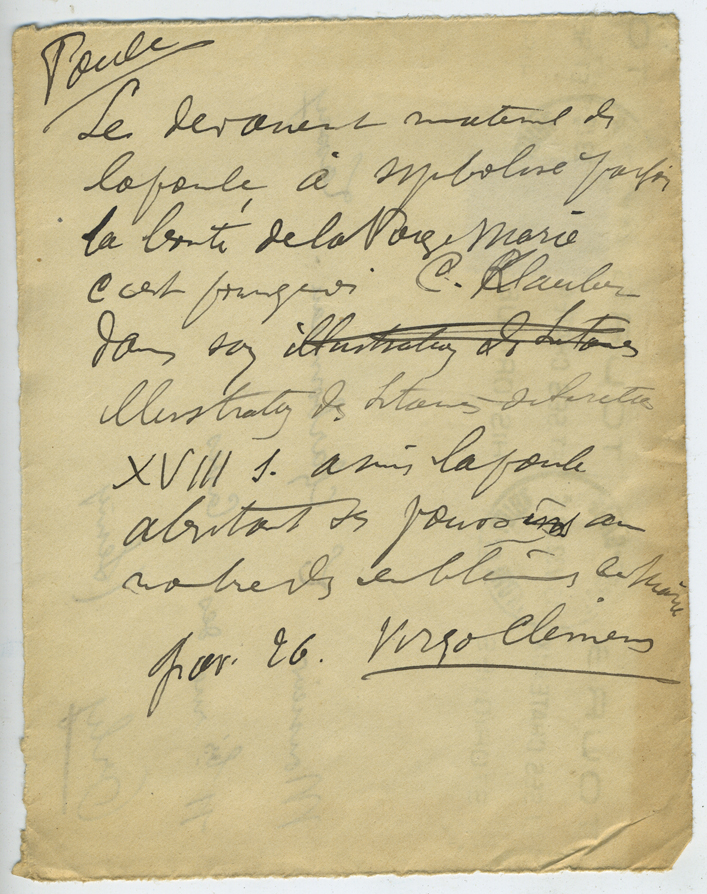 Poule
Le dévouement maternel de
la poule à symbolisé parfois
la bonté de la Vierge Marie
c'est pourquoi C. Klauber
dans son illustration des Litanies
illustration des Litanies de Lorette
XVIII s. a mis la poule
abritant ses poussins au
nombre des emblèmes de Marie
Virgo Clemens